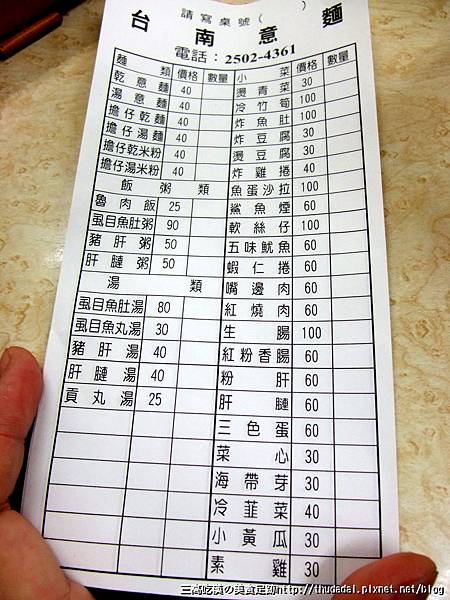 請寫桌號( )
台南意麵
電話：2502-4361
麵類 價格 數量
乾意麵 40
湯意麵 40
擔仔乾麵 40
擔仔湯麵 40
擔仔乾米粉 40
擔仔湯米粉 40
飯粥類
魯肉飯 25
虱目魚肚粥 90
豬肝粥 50
肝膁粥 50
湯類
虱目魚肚湯 80
虱目魚丸湯 30
豬肝湯 40
肝膁湯 40
貢丸湯 25
小菜 價格 數量
燙青菜 30
冷竹筍 100
炸魚肚 100
炸豆腐 30
燙豆腐 30
炸雞捲 40
魚蛋沙拉 100
鯊魚煙 60
軟絲仔 100
五味魷魚 60
蝦仁捲 60
嘴邊肉 60
紅燒肉 60
生腸 100
紅粉香腸 60
粉肝 60
肝膁 60
三色蛋 60
菜心 30
海帶芽 30
冷韮菜 40
小黃瓜 30
素雞 30
三高吃貨の美食足跡http://thudadai.pixnet.net/blog